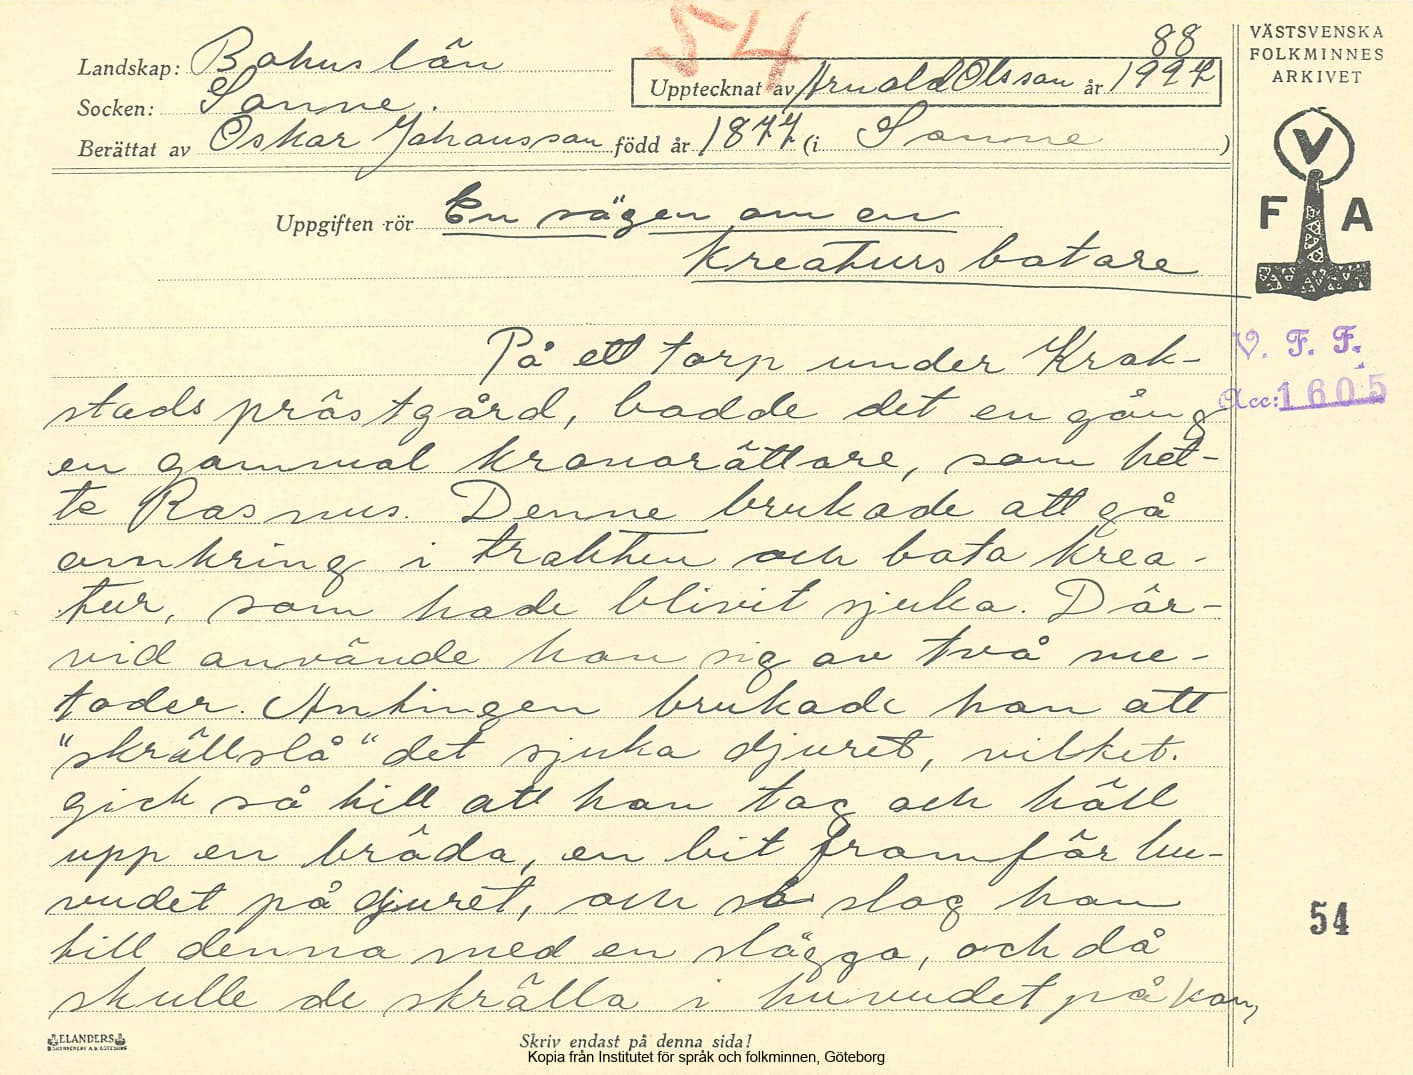 54
88
Landskap: Bohuslän
Upptecknat av Arnold Olsson år 1927
Socken: Sanne.
Berättat av Oskar Johansson född år 1877 (i Sanne)
Uppgiften rör En sägen om en
kreaturs botare
På ett torp under Krok-
stads prästgård, bodde det en gång
en gammal kronorättare, som het-
te Rasmus. Denne brukade att gå
omkring i trakten och bota krea-
tur, som hade blivit sjuka. Där-
vid använde han sig av två me-
toder. Antingen brukade han att
"skrällslå" det sjuka djuret, vilket.
gick så till att han tog och höll
upp en bräda, en bit framför hu-
vudet på djuret, och så slog han
till denna med en slägga, och då
skulle de skrälla i huvudet på kon,
ELANDERS
Skriv endast på denna sida!
Kopia från Institutet för språk och folkminnen, Göteborg
VÄSTSVENSKA
FOLKMINNES
ARKIVET
V
F A
V. F. F.
Acc: 1605
54